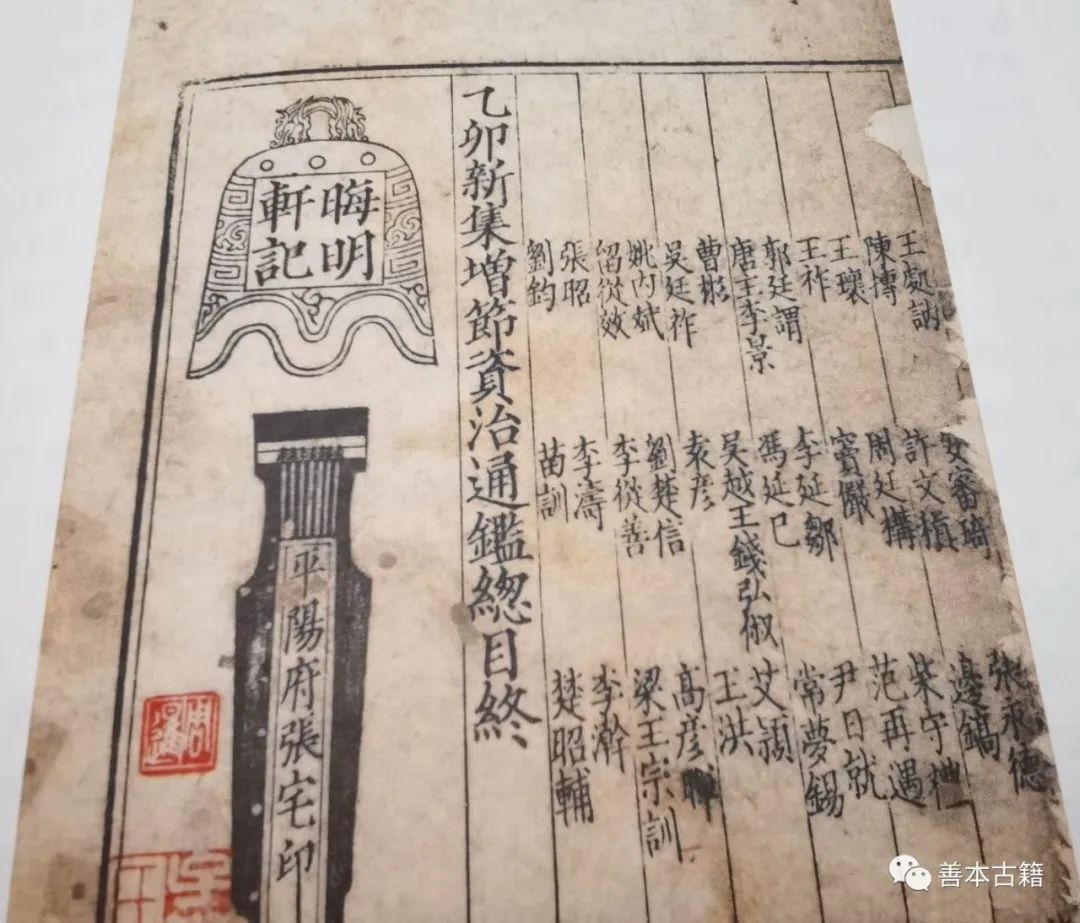 王處訥 安審琦 張永德
陳摶 許文稹 邊鎬
王瓌 周廷構 柴守禮
王祚 竇儼 范再遇
郭廷謂 李延鄒 尹日就
唐主李景 馮延巳 常夢錫
曹彬 吳越王錢弘俶 艾穎
吳廷祚 袁彥 王洪
姚內斌 劉楚信 高彥暉
留從效 李從善 梁王宗訓
張昭 李濤 李澣
劉鈞 苗訓 楚昭輔
乙卯新集增節資治通鑑總目終
晦明
軒記
平陽府張宅印
周暹
善本古籍